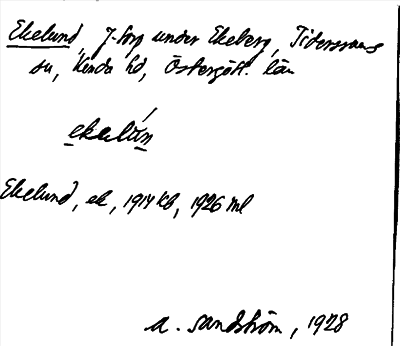 Ekelund, f. torp under Ekeberg, Tidersrums
sn, Kinda hd, Östergötl. län
ekelún
Ekelund, ek, 1914 kb, 1926 ml
A. Sandström, 1928